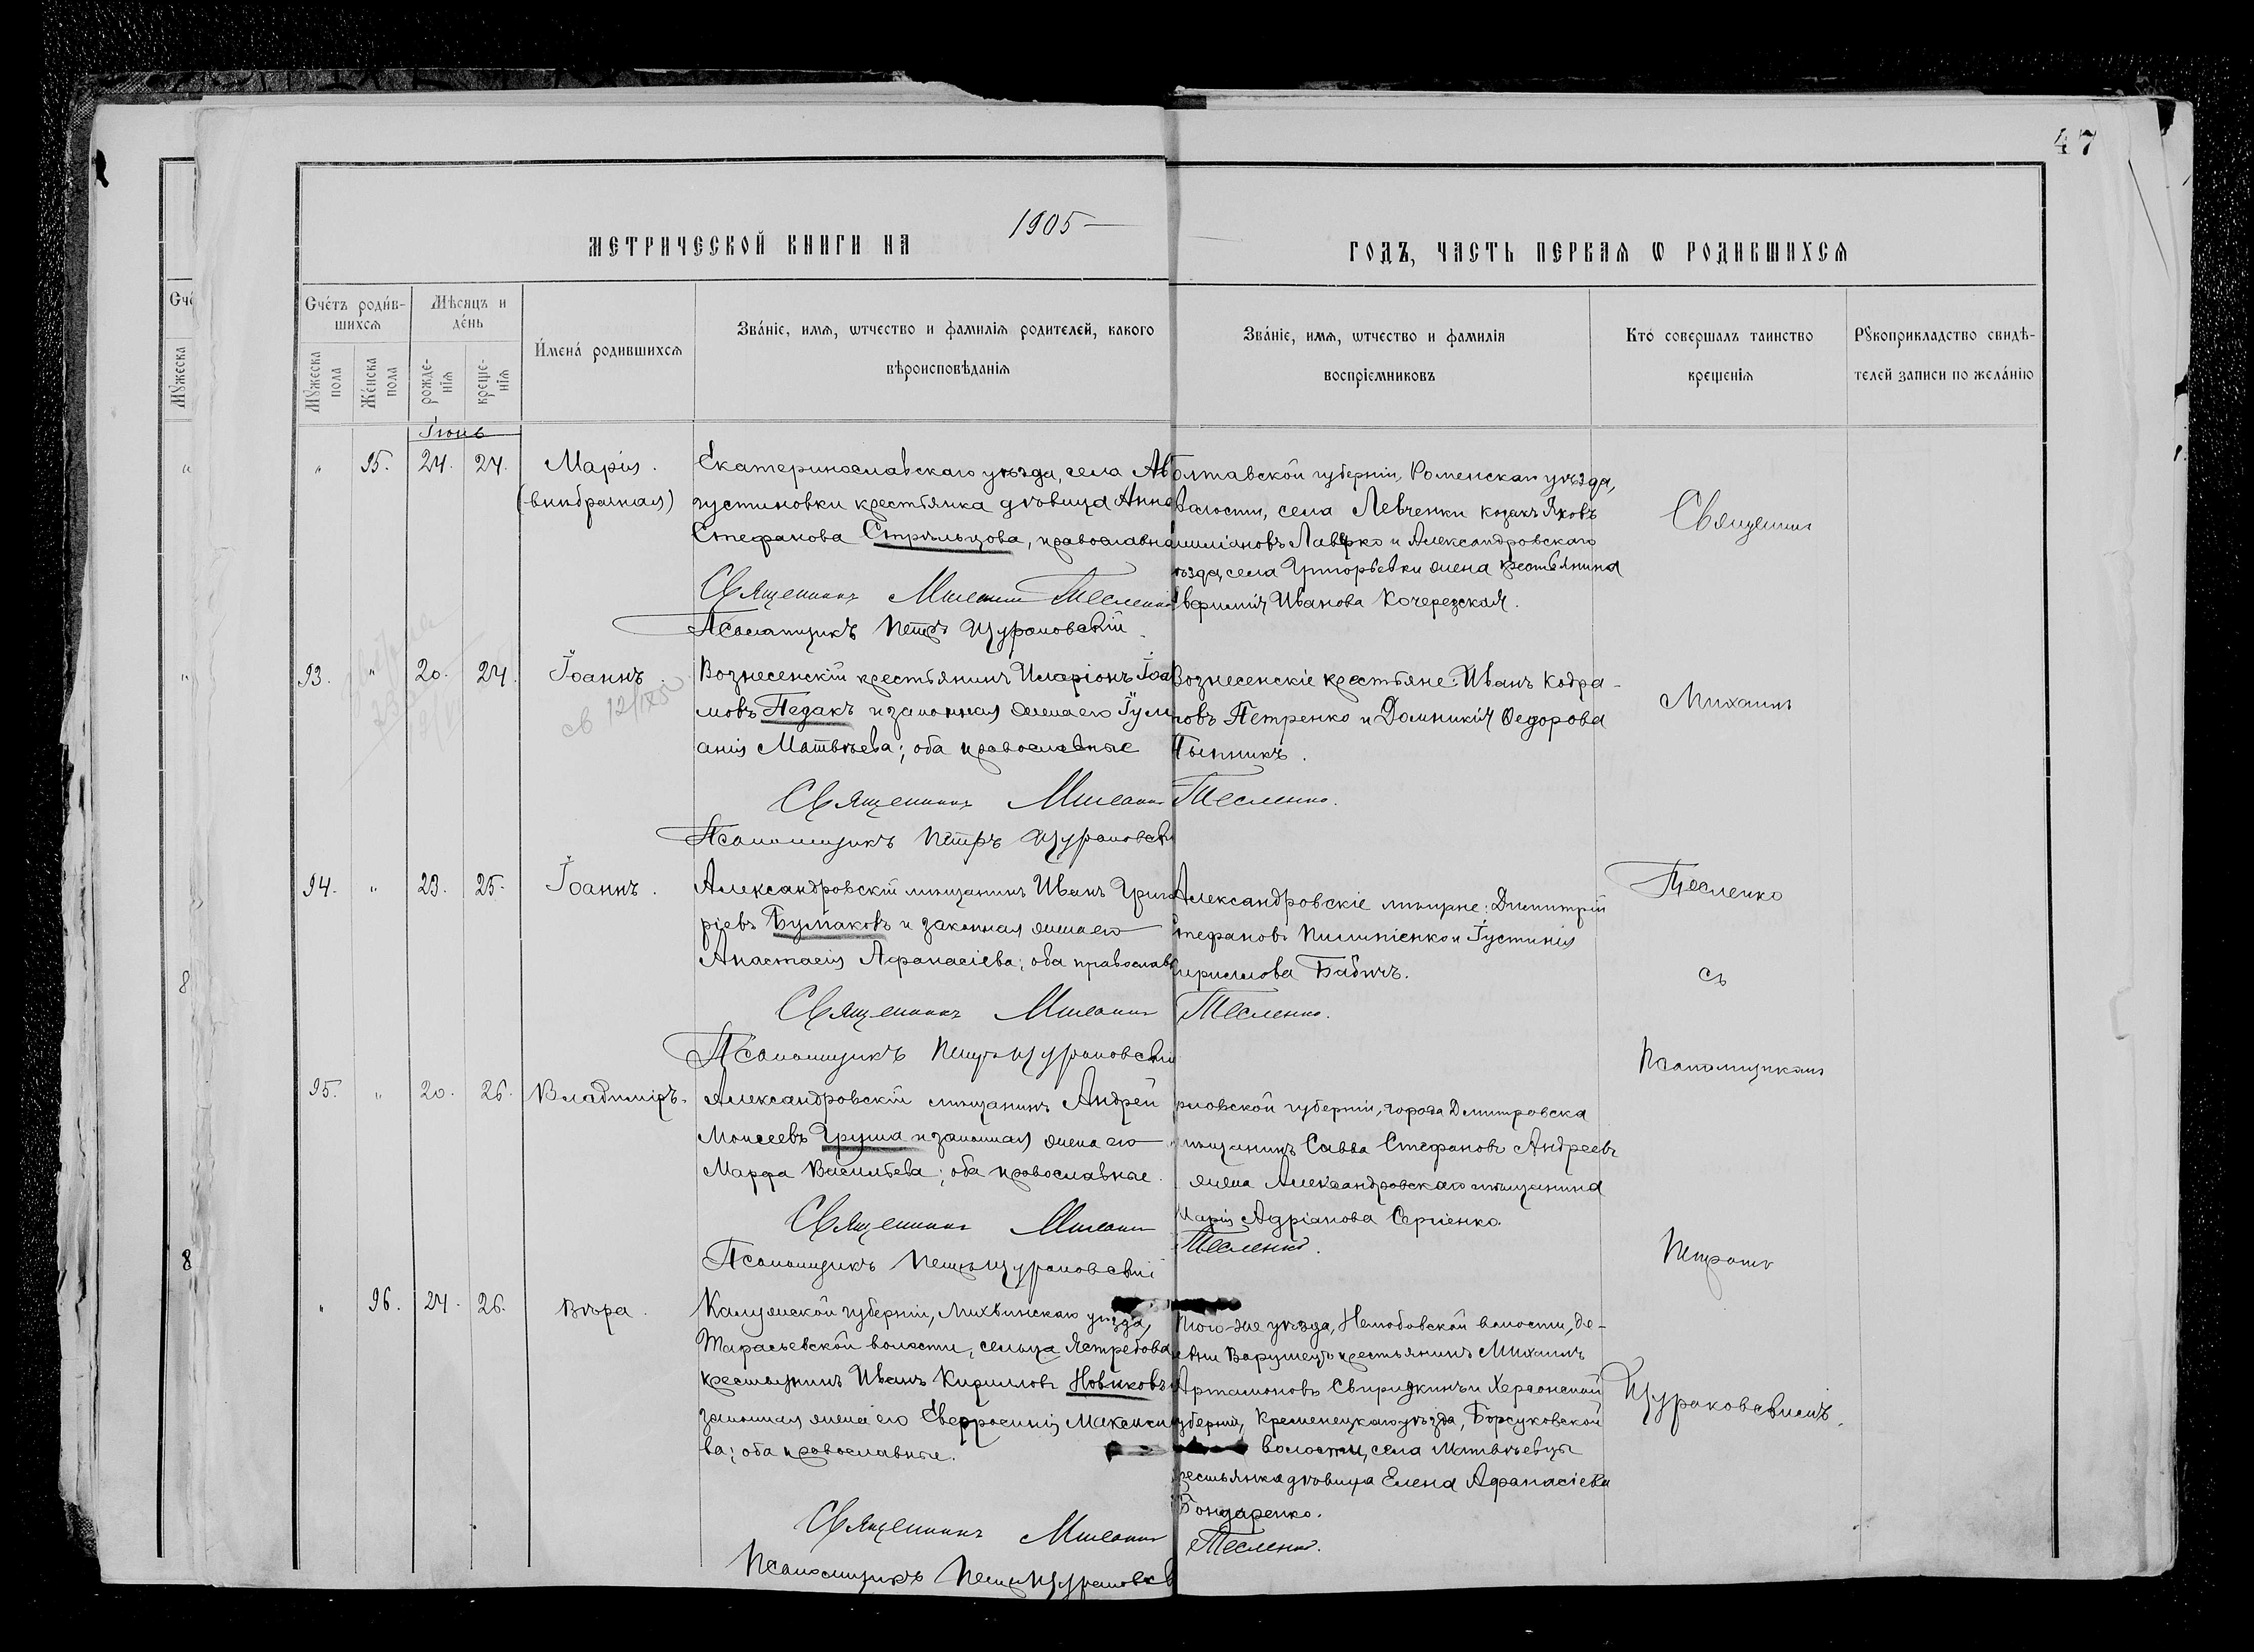 47
1905 —
МЕТРИЧЕСКОЙ КНИГИ НА
ГОДЪ, ЧАСТЬ ПЕРВАЯ Ѡ РОДИВШИХСЯ
Счётъ родив-
шихся
Мѣсяцъ и
день
Мужеска
пола
Женска
пола
рожде-
нія
креще-
нія
Имена родившихся
Званіе, имя, ѡтчество и фамилія родителей, какого
вѣроисповѣданія
Званіе, имя, ѡтчество и фамилія
воспріемниковъ
Кто совершалъ таинство
крещенія
Рукоприкладство свидѣ-
телей записи по желанію
Іюнь
" 95. 24. 24. Марія.
(внѣбрачная)
Екатеринославскаго уѣзда, села Ав
густиновки крестьянка дѣвица Анна
Стефанова Стрѣльцова, православна
Священникъ Михаилъ Тесленко
Псаломщикъ Петръ Щурановскій.
олтавской губерніи, Роменскаго уѣзда,
волости, села Левченки козакъ Яковъ
Лаврко и Александровскаго
ѣзда, села Григорьевки жена крестьянина
Иванова Кочерезская.
93. " 20. 24. Іоаннъ.
Вознесенскій крестьянинъ Иларіонъ Іоа
новъ Педакъ и законная жена его Іули
анія Матвѣева; оба православные
Священникъ Михаилъ Тесленко.
Псаломщикъ Петръ Щурановскі
Вознесенскіе крестьяне: Иванъ Кодра-
товъ Петренко и Домникія Ѳедорова
94. " 23. 25. Іоаннъ.
Александровскій мѣщанинъ Иванъ Григо
ріевъ Бумаковъ и законная жена его
Анастасія Аѳанасіева; оба православн
Священникъ Михаилъ Тесленко.
Псаломщикъ Петръ Щурановскі
Александровскіе мѣщане: Димитрій
тефановъ Пилипіенко и Іустинія
ириллова Бабичъ.
95. " 20. 26. Владиміръ.
Александровскій мѣщанинъ Андрей
Моисеевъ Груша и законная жена его
Марѳа Васильева; оба православные.
Священникъ Михаилъ Тесленко.
Псаломщикъ Петръ Щурановскій
рловской губерніи, города Дмитровска
мѣщанинъ Савва Стефановъ Андреевъ
жена Александровскаго мѣщанина
Марія Адріанова Сергіенко.
" 96. 24. 26. Вѣра.
Калужской губерніи, Лихвинскаго уѣзда,
волости, сельца Ястребова
крестьянинъ Иванъ Кирилловъ Новиковъ
законная жена его Евфросинія Максимо
ва; оба православные.
Священникъ Михаилъ Тесленко.
Псаломщикъ Петръ Щурановск
Того-же уѣзда, волости, де-
евни крестьянинъ Михаилъ
Артамоновъ Свиридкинъ и Херсонской
губерніи, Кременецкаго уѣзда, Борсуковской
волости, села Матвѣевцы
рестьянка дѣвица Елена Аѳанасіева
Бондаренко.
Священникъ
Михаилъ
Тесленко
съ
Псаломщикомъ
Петромъ
Щурановскимъ.